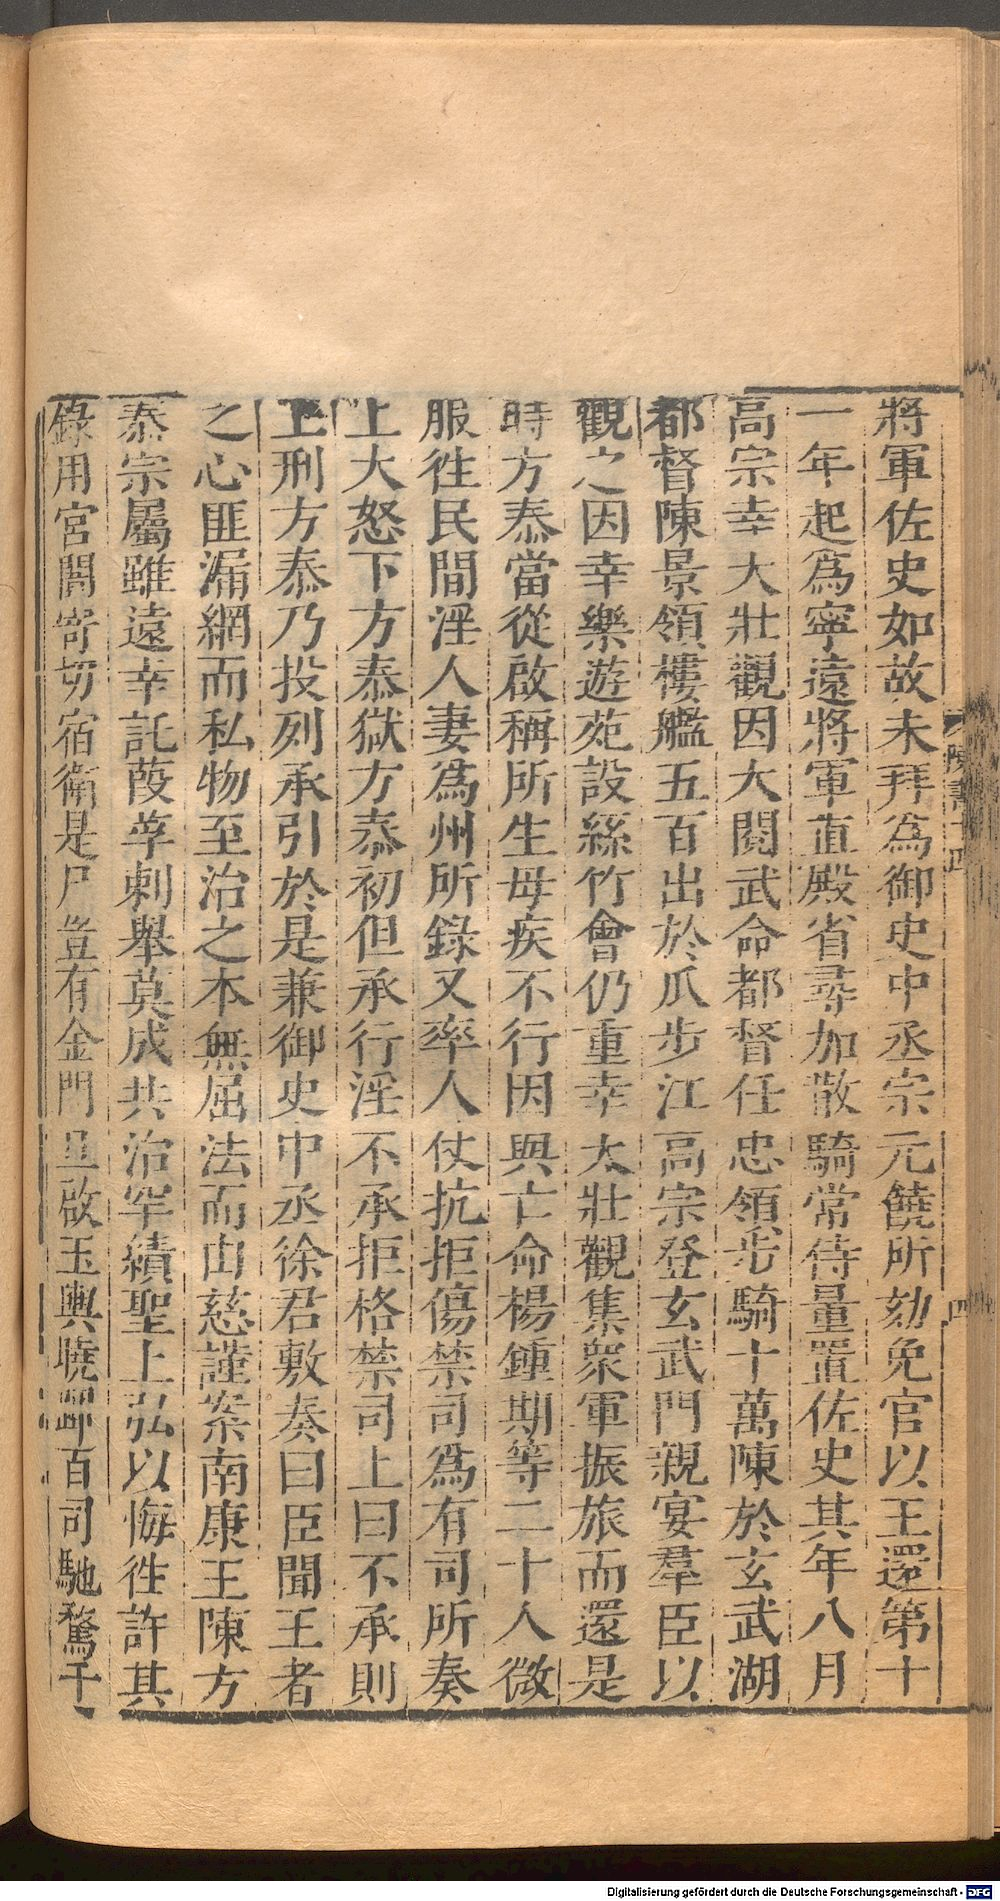 將軍佐史如故未拜為御史中丞宗元饒所劾免官以王還第十
一年起爲寧遠將軍直殿省尋加散騎常侍量置佐史其年八月
高宗幸大壯觀因大閱武命都督任忠領步騎十萬陳於玄武湖
都督陳景領樓艦五百出於瓜步江高宗登玄武門親宴羣臣以
觀之因幸樂遊苑設絲竹會仍重幸大壯觀集衆軍振旅而還是
時方泰當從啟稱所生母疾不行因與亡命楊鍾期等二十人微
服徃民間淫人妻爲州所錄又率人仗抗拒傷禁司爲有司所奏
上大怒下方泰獄方泰初但承行淫不承拒格禁司上曰不承則
上刑方泰乃投列承引於是兼御史中丞徐君敷奏曰臣聞王者
之心匪漏網而私物至治之本無屈法而由慈謹案南康王陳方
泰宗屬雖遠幸託葭莩刺舉莫成共治罕績聖上弘以悔徃許其
錄用宮闈寄切宿衛是尸豈有金門旦啟玉輿曉蹕百司馳騖千
陳書十四
四
Digitalisierung gefördert durch die Deutsche Forschungsgemeinschaft - DFG